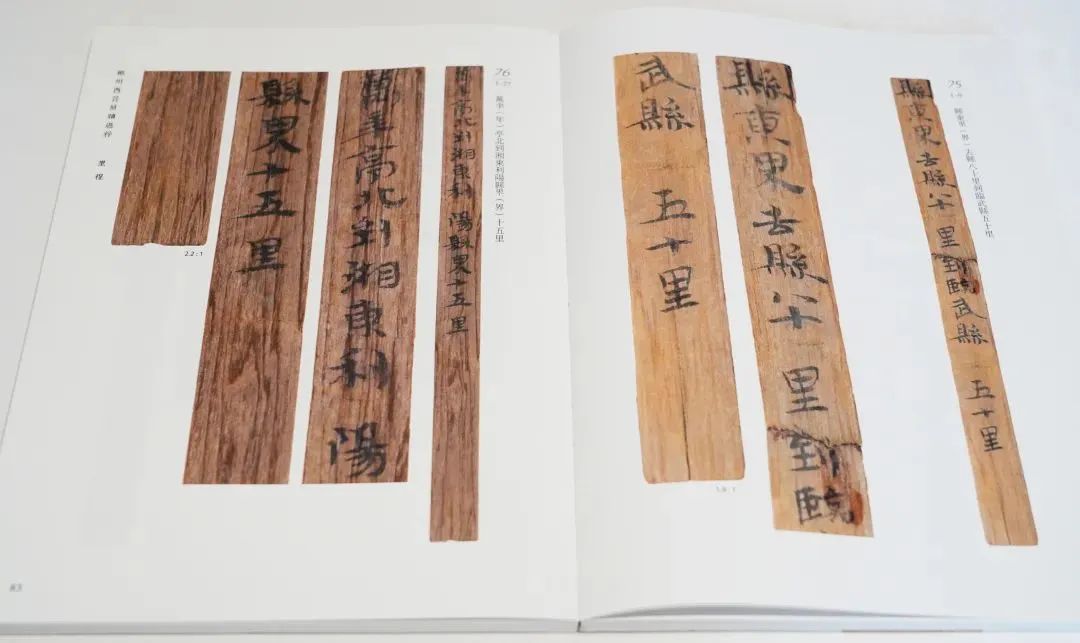 75
1-9
縣東畍（界）去縣八十里到臨武縣五十里
縣東畍去縣八十里到臨武縣五十里
縣東畍去縣八十里到臨
武縣五十里
76
萬秊（年）亭北到湘東利陽縣畍（界）十五里
萬秊亭北到湘東利陽縣畍十五里
萬秊亭北到湘東利陽
縣畍十五里
2.2:1
郴州西晉簡牘選粹 里程